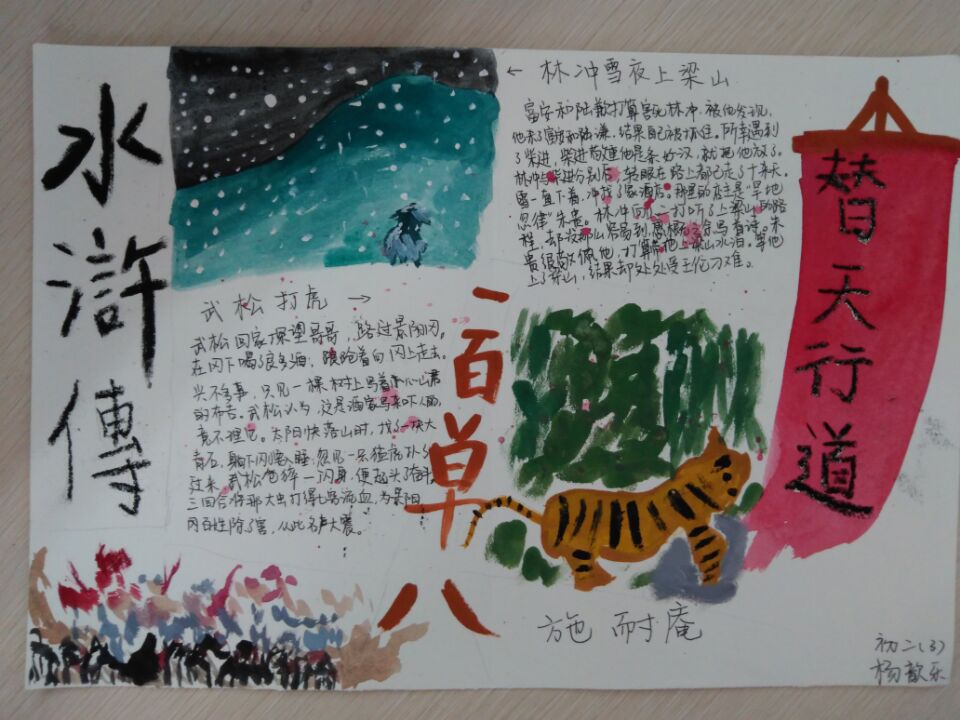 水滸傳
← 林冲雪夜上梁山
富安和陆谦打算害死林冲,被他发现,
他杀了富安和陆谦,结果自己被抓住。所幸遇到
了柴进,柴进知道他是条好汉,就把他放了。
林冲与柴进分别后,转眼在路上都已走了十来天。
雪一直下着,冲找了家酒店。那里的店主是“旱地
忽律”朱贵。林冲向一打听了上梁山的路
程,却没那么容易到,写着诗。朱
贵很敬佩他,打算带他上梁山水泊。等他
上了梁山,结果却处处受王伦刁难。
替天行道
武松打虎 →
武松回家探望哥哥,路过景阳冈。
在冈下喝了良多酒,踉跄着向冈上走去。
兴不多事,只见一棵树上写着
的布告。武松认为,这是酒家写来吓人的,
竟不理它。太阳快落山时,找了一块大
青石,躺下闪要入睡,忽见一只猛虎扑了
过来,武松一闪身,便
三回合将那大虫打得七窍流血,为景阳
冈百姓除了害,从此名声大震。
一百单八
施耐庵
初二(3)
杨歆乐